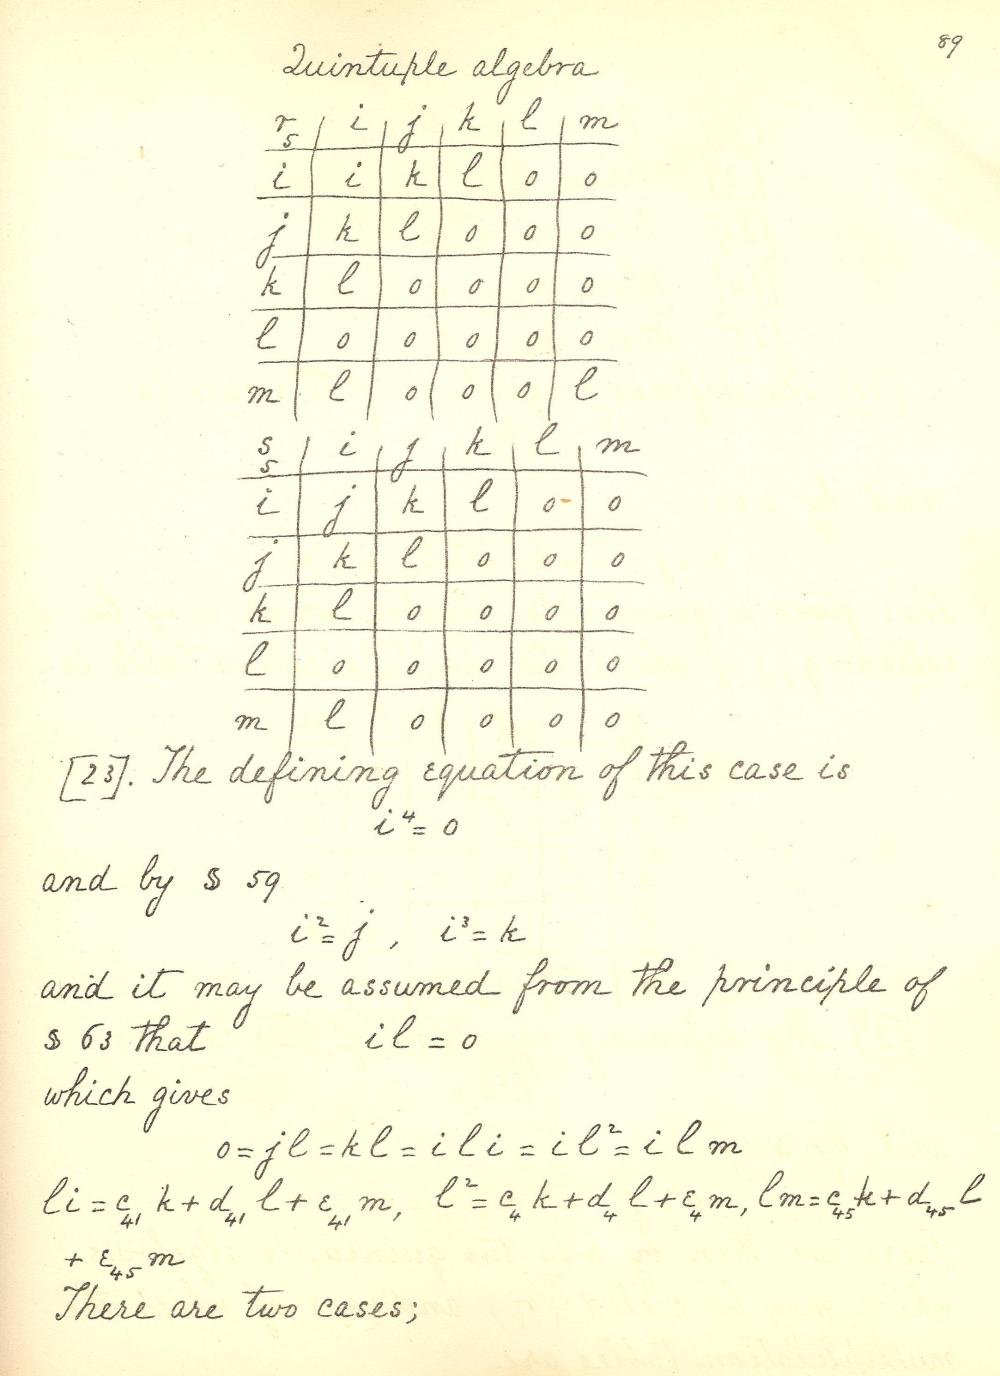 89
Quintuple algebra
r₅ | i | j | k | l | m
i | i | k | l | o | o
j | k | l | o | o | o
k | l | o | o | o | o
l | o | o | o | o | o
m | l | o | o | o | l
s₅ | i | j | k | l | m
i | j | k | l | o | o
j | k | l | o | o | o
k | l | o | o | o | o
l | o | o | o | o | o
m | l | o | o | o | o
[23]. The defining equation of this case is
i⁴ = 0
and by § 59
i² = j , i³ = k
and it may be assumed from the principle of
§ 63 that il = 0
which gives
0 = jl = kl = ili = il² = ilm
li = c₄₁ k + d₄₁ l + e₄₁ m, l² = c₄ k + d₄ l + e₄ m, lm = c₄₅ k + d₄₅ l
+ e₄₅ m
There are two cases;